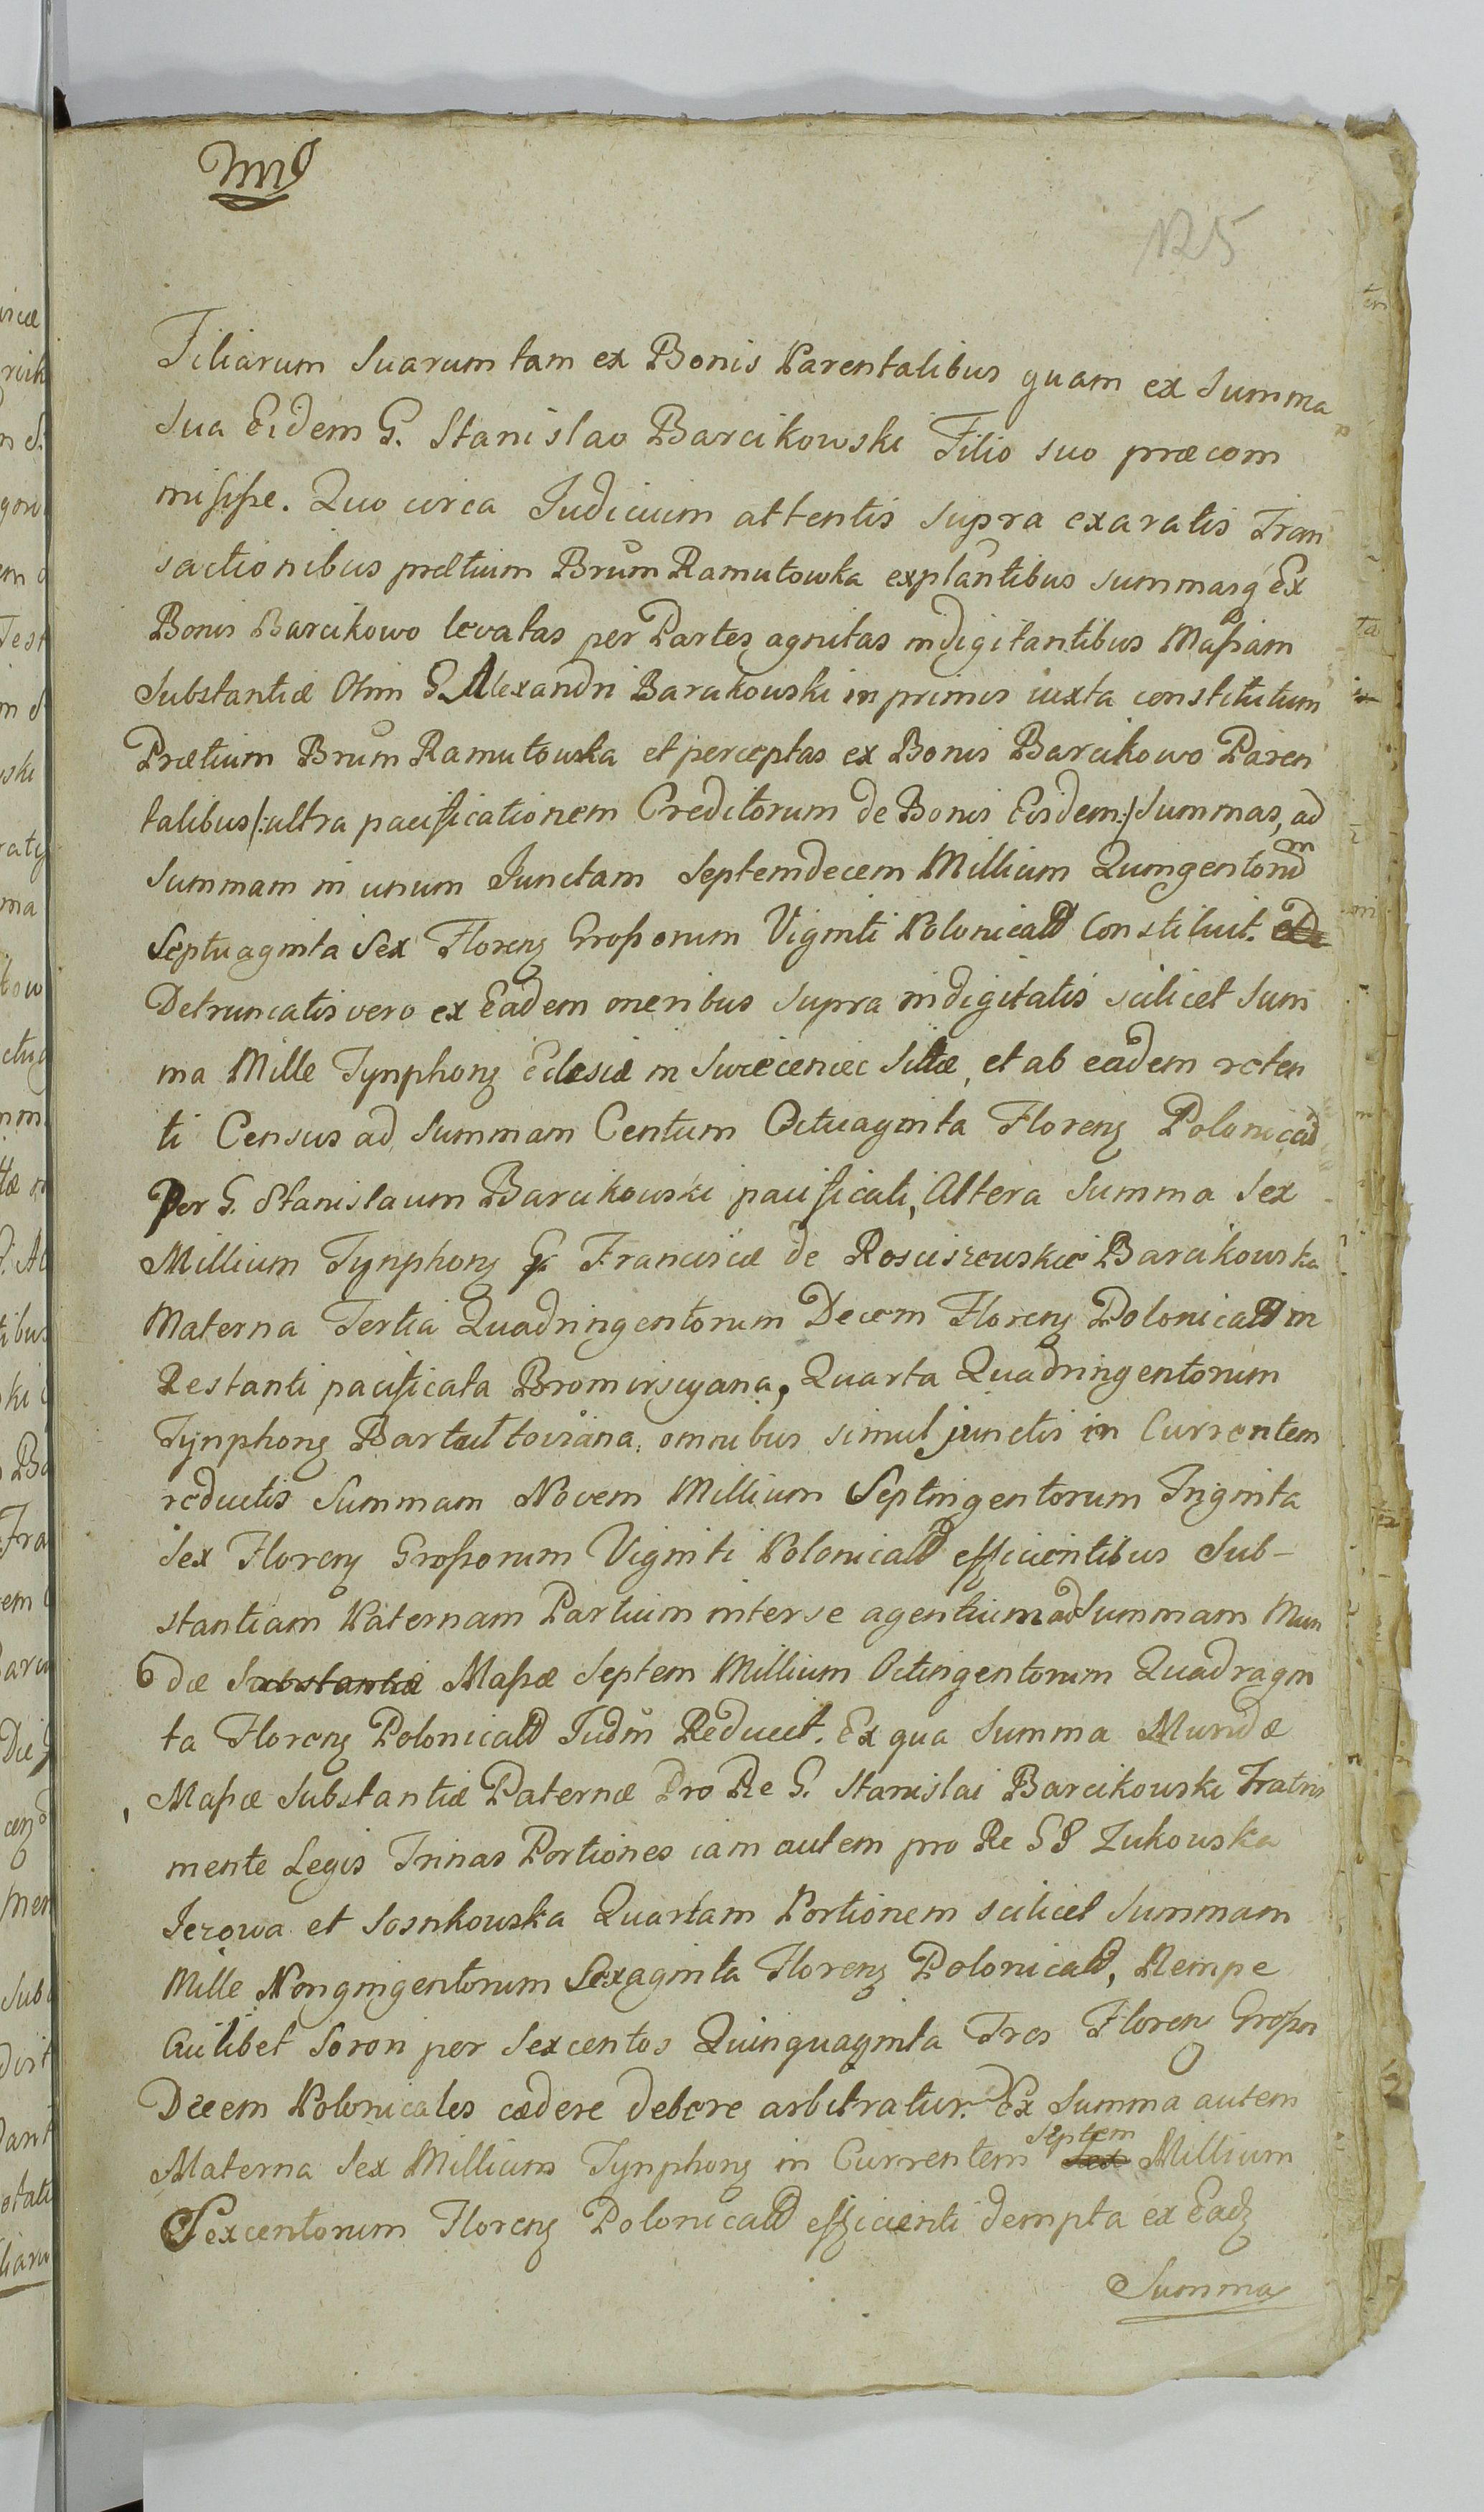 125
Filiarum Suarum tam ex Bonis Parentalibus quam ex Summa
Sua Eidem G. Stanislao Barcikowski Filio suo præcom
misisse. Quo circa Iudicium attentis supra exaratis Tran
sactionibus prætium Brum Ramutowka explantibus summasq Ex
Bonis Barcikowo levatas per Partes agnitas indigitantibus Massam
Substantiæ Olim G. Alexandri Barcikowski in primis iuxta constitutum
Prætium Brum Ramutowka et perceptas ex Bonis Barcikowo Paren
talibus /: ultra pacificationem Creditorum de Bonis Eisdem :/ Summas, ad
Summam in unum Junctam Septemdecem Millium Quingentorum
Septuaginta Sex Florenz Grossorum Viginti Polonicald Constituit.
Detruncatis vero ex Eadem oneribus supra indigitatis scilicet Sum
ma Mille Tynphonz Eclesiæ in Swięcieniec Sittæ, et ab eadem reten
ti Census ad Summam Centum Octuaginta Florenz Polonicald
Per G. Stanislaum Barcikowski pacificati, Altera Summa Sex
Millium Tynphonz G. Francisiæ de Rosciszewskie Barcikowska
Materna Tertia Quadringentorum Decem Florenz Polonicald in
Restanti pacificata Bromirscyana, Quarta Quadringentorum
Tynphonz Bartultoviana, omnibus simul junctis in Currentem
reductis Summam Novem Millium Septingentorum Triginta
Sex Florenz Grossorum Viginti Polonicald efficientibus Sub-
stantiam Paternam Partium inter se agentium ad Summam Mun
dæ Substantiæ Massæ Septem Millium Octingentorum Quadragin
ta Florenz Polonicald Iudm Reducit. Ex qua Summa Mundæ
Massæ Substantiæ Paternæ Pro Re G. Stanislai Barcikowski Fratris
mente Legis Trinas Portiones iam autem pro Re GG Zukowska
Jezowa et Sosnkowska Quartam Portionem scilicet Summam
Mille Nongingentorum Sexaginta Florenz Polonicald, Nempe
Cuilibet Sorori per Sexcentos Quinquaginta Tres Floren Grossos
Decem Polonicales cædere debere arbitratur. Ex Summa autem
Materna Sex Millium Tynphonz in Currentem Septem Sex Millium
Sexcentorum Florenz Polonicald efficienti dempta ex Eadz
Summa